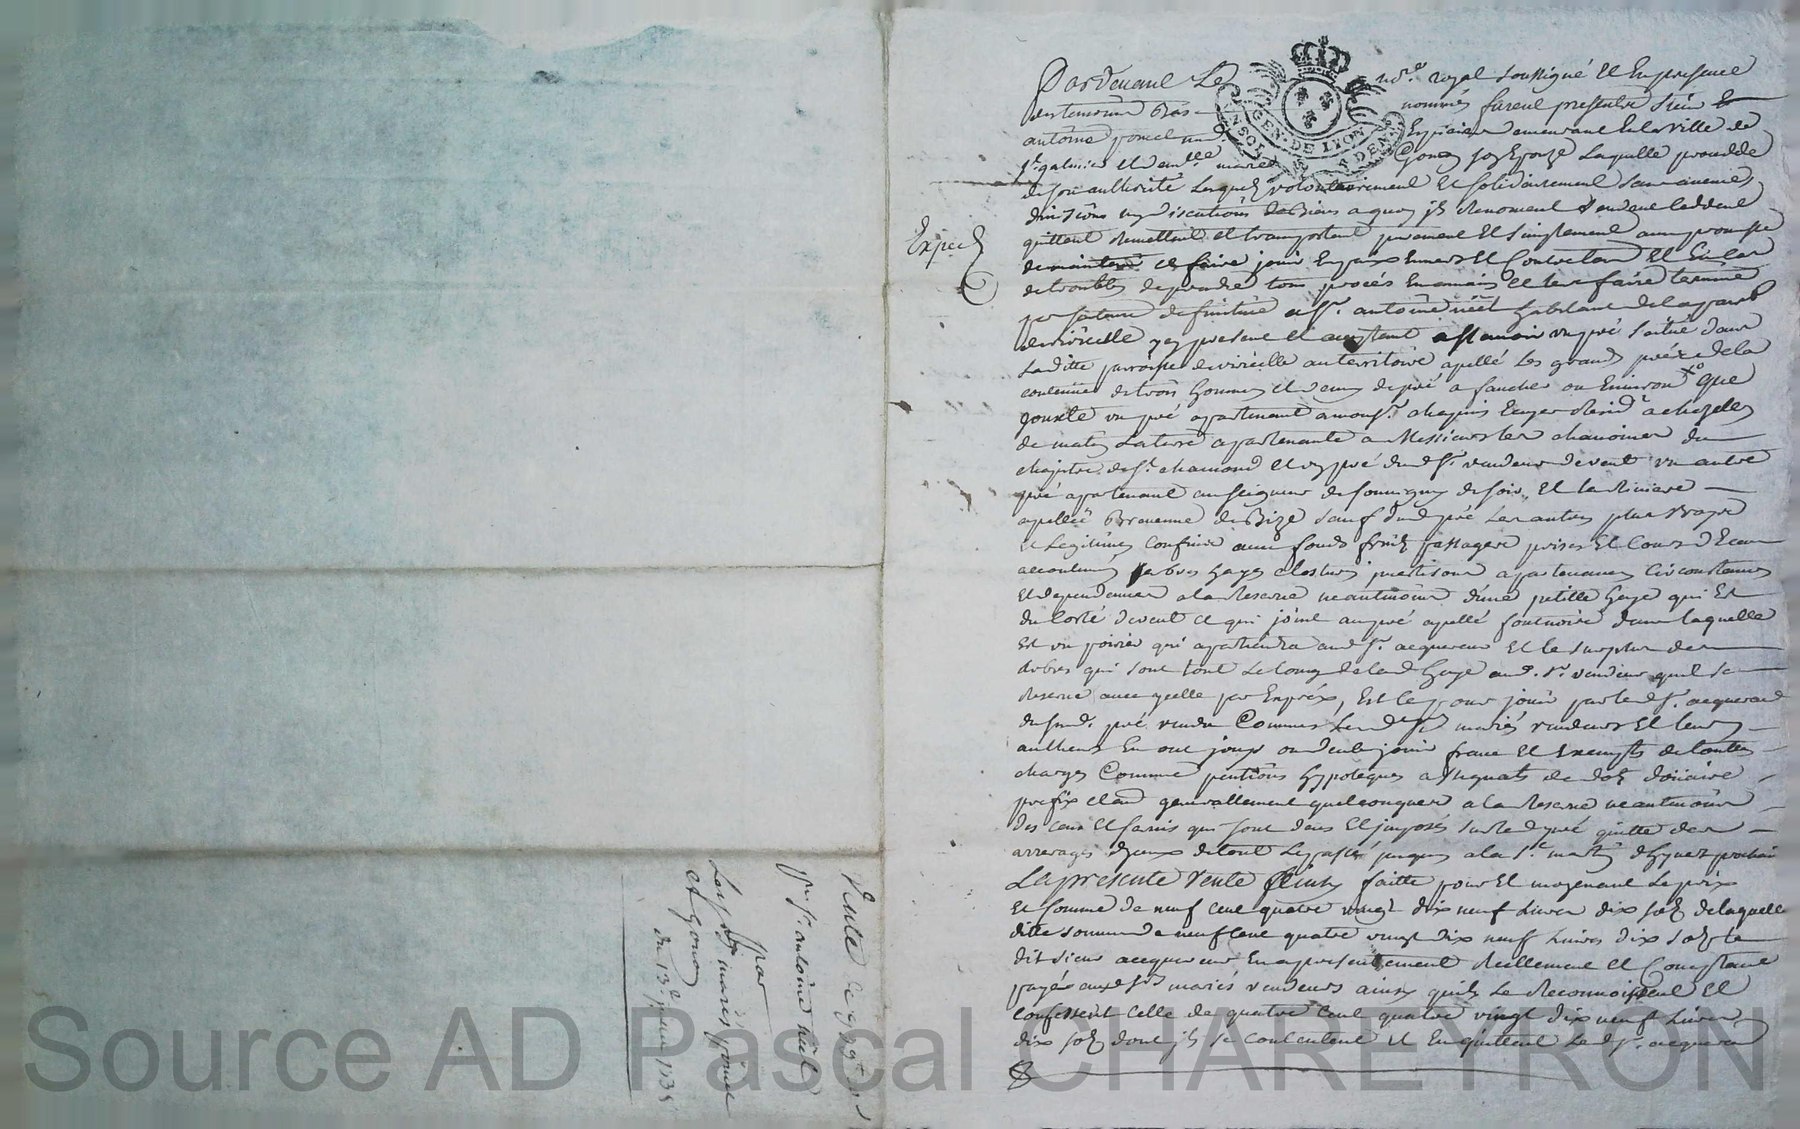 Pardevant Le nore. royal soussigné Et En presence
des temoins bas nommés furent presents Sieur
antoine poncet Epicier demeurant En la Ville de
st. galmier et demlle. marie Gonon son Epouze Laquelle procedde
de son authorité Lesquels volontairement Et solidairement sans aucunes
divisions ny discutions de Biens a quoy ils Renoncent Vendent ceddent
quittent Remettent et transportent purement Et simplement avec promesse
de maintenir et faire jouir En paix Envers Et Contre tous Et En Cas
de troubles de prendre tous procés En mains Et les faire terminer
par sentence definitive a sr. antoine habitant de la parse
de viricelle present Et acceptant assavoir un pré scitué dans
La ditte parroisse de viricelle au territoire apellé Les grands prés de la
contenue de trois hommes et demy de pré a faucher ou Environ Xo que
jouxte un pré apartenant a monsr. chapuis Ecuyer Residt a chazelles
de matin La terre apartenante a Messieurs les chanoines du
chapitre de st. chamond Et un pré dud sr. vendeur de vent un autre
pré apartenant au seigneur de de soir, Et la Riviere
apellée de Bize sauf dud pré Les autres plus Vrays
Et Legitimes Confins avec fonds fruits passages prises Et Cours d'Eau
accoutumés arbres hayes clostures apartenances Circonstances
Et dependances a la Reserve neantmoins d'une petitte haye qui Est
du Costé de vent Et qui joint au pré apellé dans laquelle
Est un poirier qui apartiendra aud sr. acquereur Et le surplus des
Arbres qui sont tout Le Long de lad haye aud. sr. vendeur qu'il se
Reserve avec ycelle par Exprés, Est Ce pour jouir par led sr. acquereur
dud. pré vendu Comme Lesd mariés vendeurs Et leurs
autheurs En ont jouy ou deub jouir franc Et Exempts de touttes
charges Comme pentions hypoteques assignats de dots doüaire
prefix Et generallement quelconques a la Reserve neantmoins
des cens Et servis qui sont deus Et imposés sur led pré quitte des
arrerages d'yceux de tout Le passé jusques a la st. martin d'hyver prochain
La presente Vente Etant faitte pour Et moyenant Le prix
Et somme de neuf cent quatre vingt dix neuf Livres dix sols de laquelle
ditte somme de neuf cent quatre vingt dix neuf Livres dix sols le
dit sieur acquereur En a presentement Reellement Et Comptant
payé auxd srs. mariés vendeurs ainsy qu'ils Le Reconnoissent Et
Confessent Celle de quatre Cent quatre vingt dix neuf Livres
dix sols dont ils se Contentent Et En quittent Le d sr. acquereur
Exped
GEN. DE LYON
Vente de 999# 10 s
par
Les sr mariés poncet
et Gonon
Source AD Pascal CHAREYRON